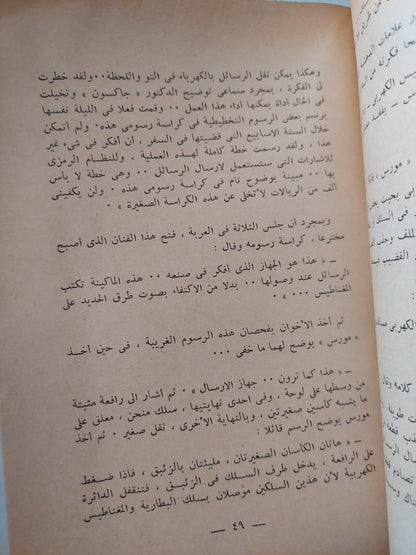 وهكذا يمكن نقل الرسائل بالكهرباء فى التو واللحظة..ولقد خطرت
لى الفكرة ، بمجرد سماعى توضيح الدكتور « جاكسون » وتخيلت
فى الحال أداة يمكنها أداء هذا العمل .. وقمت فعلا فى الليلة نفسها
برسم بعض الرسوم التخطيطية فى كراسة رسومى هذه . ولم أتمكن
خلال الستة الاسابيع التى قضيتها فى السفر ، أن أفكر فى شىء غير
هذا ، ولقد رسمت خطة كاملة لهذه العملية ، وللنظام الرمزى
للاشارات التى ستستعمل لارسال الرسائل .. وهى خطة لا بأس
بها .. مبينة بوضوح تام فى كراسة رسومى هذه . ولن يكفينى
ألف من الريالات لأتخلى عن هذه الكراسة الصغيرة » .
وبمجرد أن جلس الثلاثة فى العربة ، فتح هذا الفنان الذى أصبح
مخترعا ، كراسة رسومه وقال :
ـ « هذا هو الجهاز الذى أفكر فى صنعه .. هذه الماكينة تكتب
الرسائل عند وصولها .. بدلا من الاكتفاء بصوت طرق الحديد على
المغناطيس ... » .
ثم أخذ الأخوان يفحصان هذه الرسوم الغريبة ، فى حين أخذ
« مورس » يوضح لهما ما خفى ...
ـ « هذا كما ترون .. جهاز الارسال » . ثم أشار الى رافعة مثبتة
من وسطها على لوحة ، وفى احدى نهايتيها ، سلك منحن ، معلق على
ما يشبه كأسين صغيرتين ، وبالنهاية الأخرى ، ثقل صغير . ثم أخذ
مورس يوضح الرسم قائلا :
ـ « هاتان الكأسان الصغيرتان ، مليئتان بالزئبق ، فاذا ضغط
على الرافعة ، يدخل طرف السلك فى الزئبق ، فتنقفل الدائرة
الكهربية لأن هذين السلكين موصلان بسلك البطارية والمغناطيس
— ٤٩ —